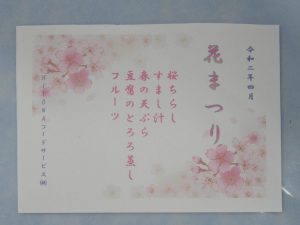 令和二年四月
花まつり
桜ちらし
すまし汁
春の天ぷら
豆腐のとろろ蒸し
フルーツ
フードサービス㈱